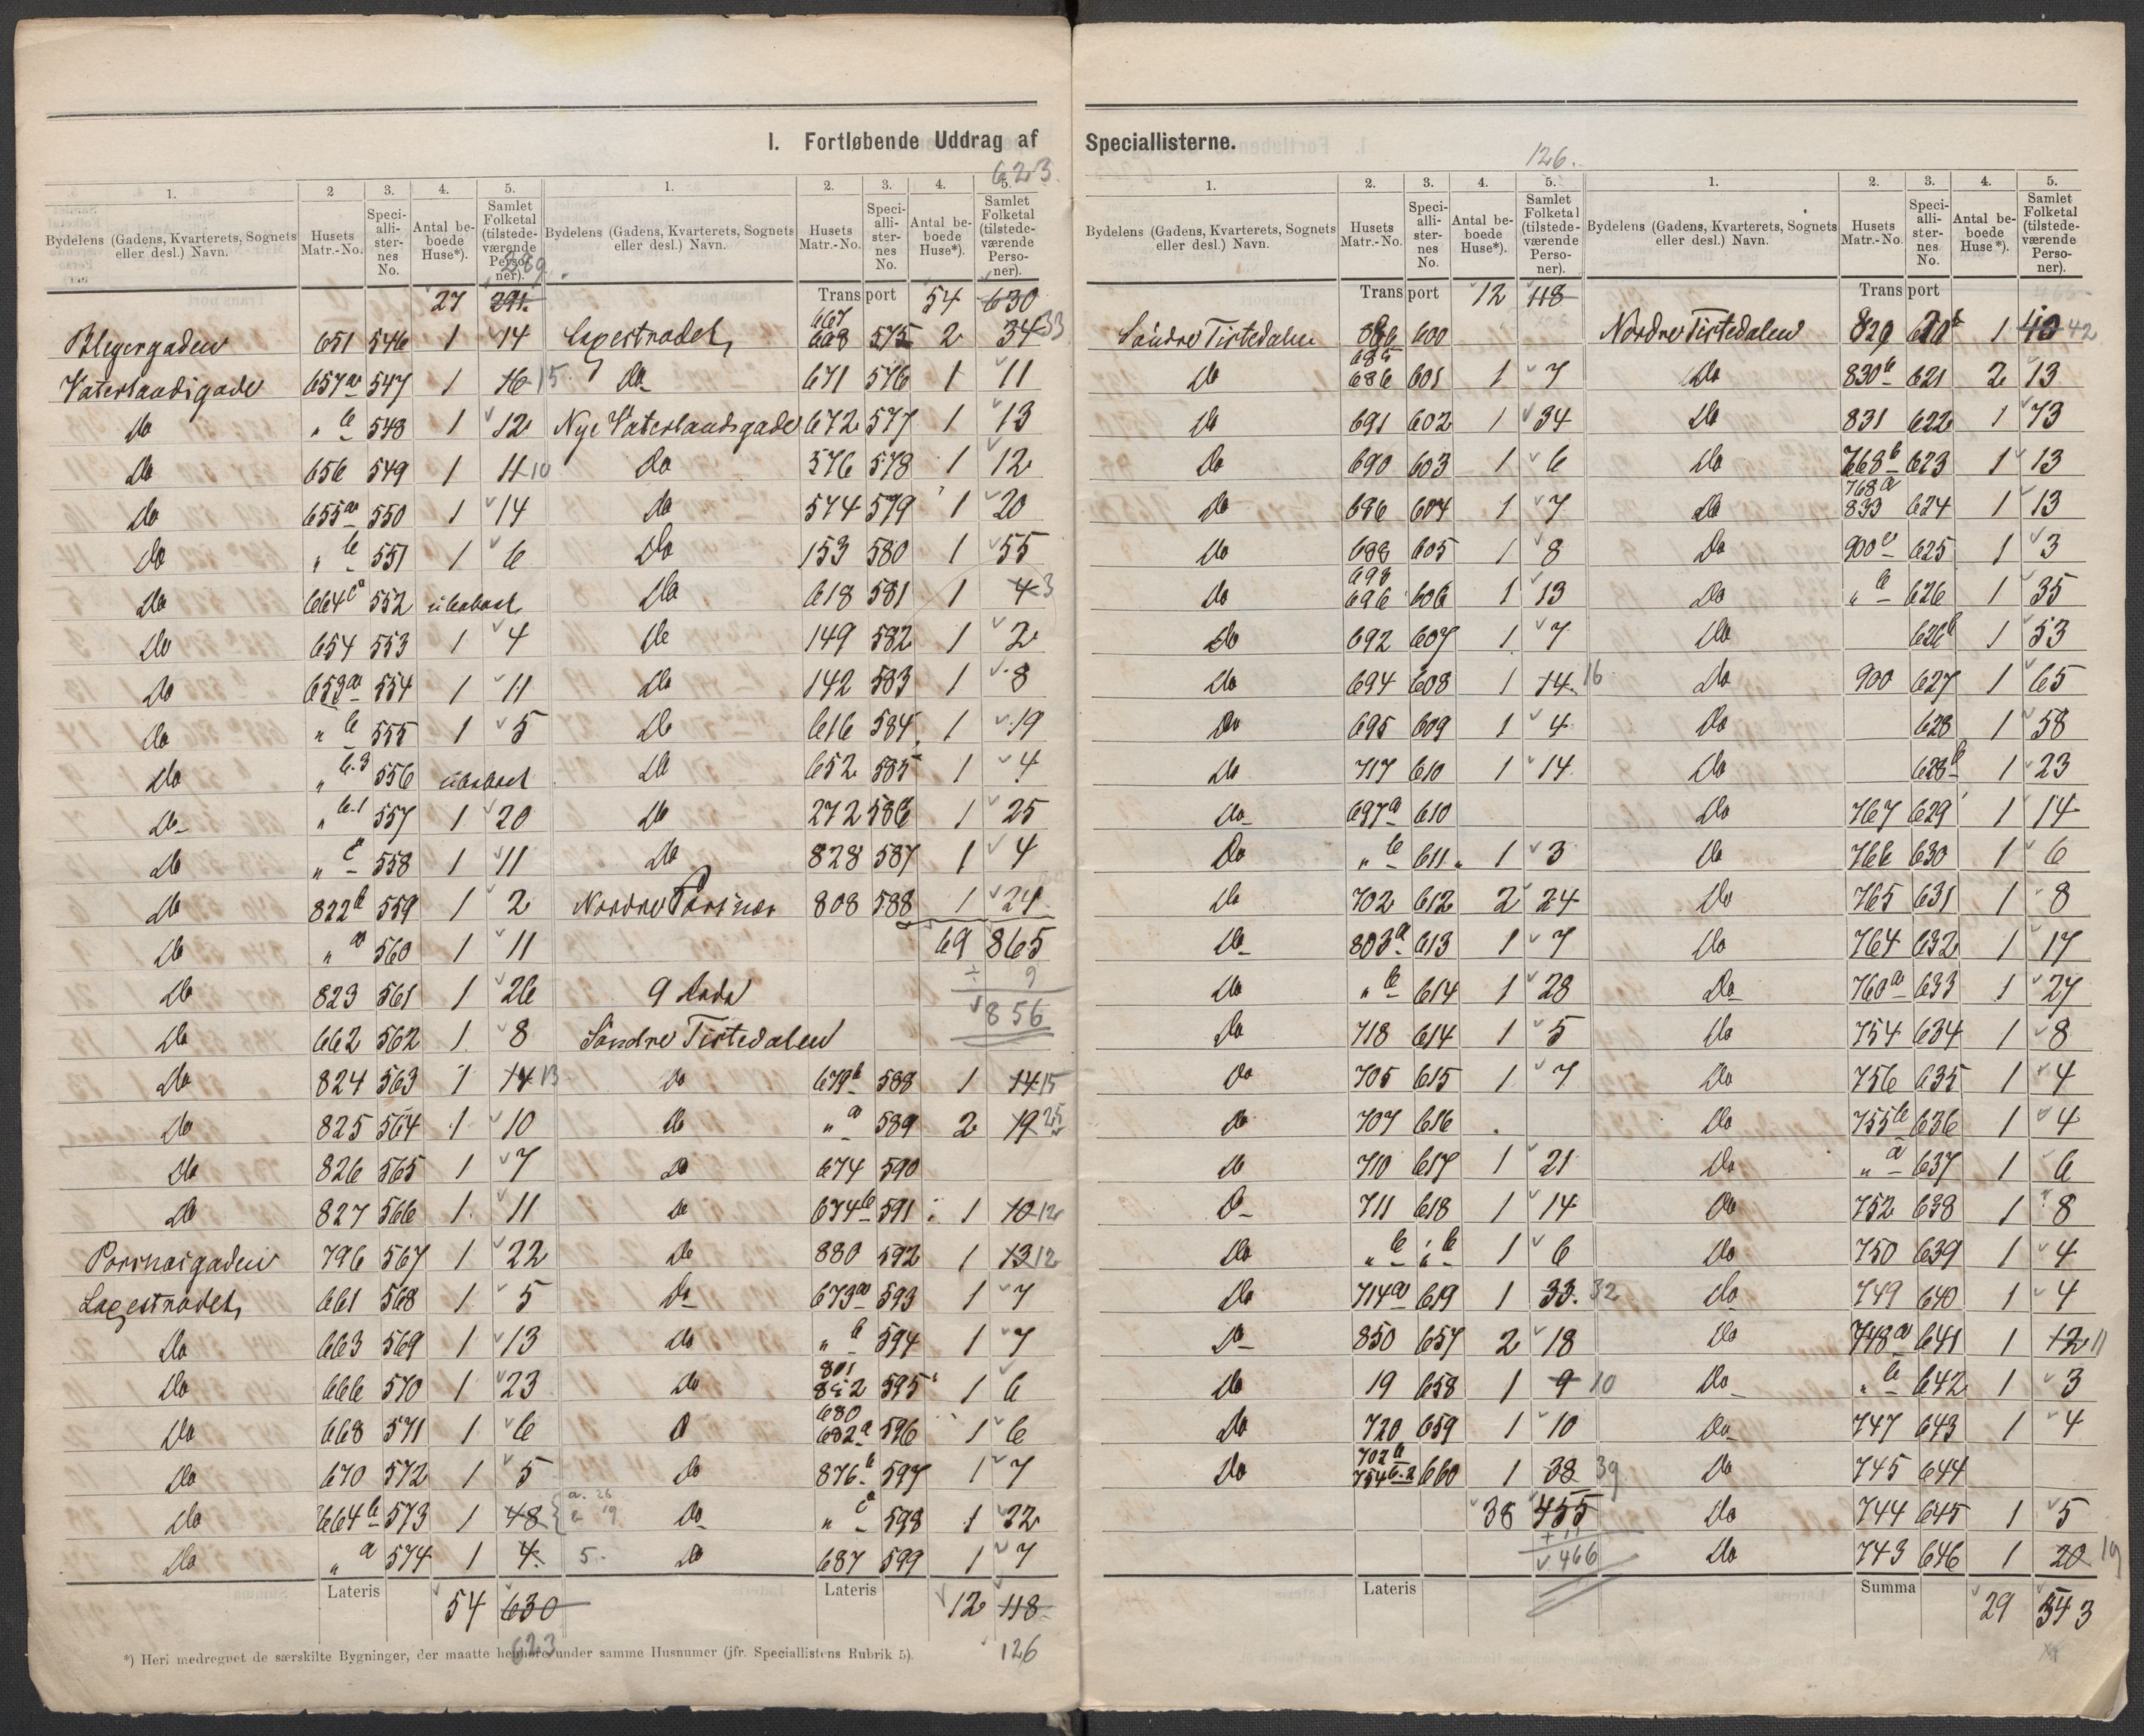 I. Fortløbende Uddrag af Speciallisterne.
623.
1. 2 3. 4. 5. 1. 2. 3. 4. 5.
Bydelens (Gadens, Kvarterets, Sognets eller desl.) Navn. Husets Matr.-No. Speci-alli-ster-nes No. Antal be-boede Huse*). Samlet Folketal (tilstede-værende Perso-ner). Bydelens (Gadens, Kvarterets, Sognets eller desl.) Navn. Husets Matr.-No. Speci-alli-ster-nes No. Antal be-boede Huse*). Samlet Folketal (tilstede-værende Perso-ner).
289
27 291. Transport 54 630
651 546 1 14 Lagestrædet, 667 668 575 2 34 33
Vaterlandsgade 657a 547 1 16 15 Do 671 576 1 11
Do " b 548 1 12 Nye Vaterlandsgade 672 577 1 13
Do 656 549 1 11 10 Do 576 578 1 12
Do 655a 550 1 14 Do 574 579 1 20
Do " b 551 1 6 Do 153 580 1 55
Do 664c 552 ubeboet Do 618 581 1 4 3
Do 654 553 1 4 Do 149 582 1 2
Do 653a 554 1 11 Do 142 583 1 8
Do " b 555 1 5 Do 616 584 1 19
Do " b.3 556 ubeboet Do 652 585 1 4
Do " b.1 557 1 20 Do 272 586 1 25
Do " c 558 1 11 Do 828 587 1 4
Do 822b 559 1 2 Nordre Porsnes 808 588 1 24
Do " a 560 1 11 69 865
Do 823 561 1 26 9 Rode ÷ 9
Do 662 562 1 8 Søndre Tistedalen 856
Do 824 563 1 14 13 Do 679b 588 1 14 15
Do 825 564 1 10 Do " a 589 2 19 25
Do 826 565 1 7 Do 674 590
Do 827 566 1 11 Do 674b 591 1 10 12
Porsnæsgaden 796 567 1 22 Do 880 592 1 13 12
Lagestrædet, 661 568 1 5 Do 673a 593 1 7
Do 663 569 1 13 Do " b 594 1 7
Do 666 570 1 23 Do 801 852 595 1 6
Do 668 571 1 6 D 680 682a 596 1 6
Do 670 572 1 5 Do 876b 597 1 7
Do 664b 573 1 48 a. 26 b 19 Do " c 598 1 22
Do " a 574 1 4. 5. Do 687 599 1 7
Lateris 54 630 Lateris 12 118
623 126
*) Heri medregnet de særskilte Bygninger, der maatte henhøre under samme Husnumer (jfr. Speciallistens Rubrik 5).
126.
1. 2. 3. 4. 5. 1. 2. 3. 4. 5.
Bydelens (Gadens, Kvarterets, Sognets eller desl.) Navn. Husets Matr.-No. Speci-alli-ster-nes No. Antal be-boede Huse*). Samlet Folketal (tilstede-værende Perso-ner). Bydelens (Gadens, Kvarterets, Sognets eller desl.) Navn. Husets Matr.-No. Speci-alli-ster-nes No. Antal be-boede Huse*). Samlet Folketal (tilstede-værende Perso-ner).
Transport 12 118 Transport
Søndre Tistedalen 600 Nordre Tistedalen 829 620b 1 40 42
Do 685 686 601 1 7 Do 830b 621 2 13
Do 691 602 1 34 Do 831 622 1 73
Do 690 603 1 6 Do 768b 623 1 13
Do 696 604 1 7 Do 768a 833 624 1 13
Do 688 605 1 8 Do 900a 625 1 3
Do 698 696 606 1 13 Do " b 626 1 35
Do 692 607 1 7 Do 626b 1 53
Do 694 608 1 14. 16 Do 900 627 1 65
Do 695 609 1 4 Do 628 1 58
Do 717 610 1 14 Do 628b 1 23
Do 697a 610 Do 767 629 1 14
Do " b 611 1 3 Do 766 630 1 6
Do 702 612 2 24 Do 765 631 1 8
Do 803a 613 1 7 Do 764 632 1 17
Do " b 614 1 28 Do 760a 633 1 27
Do 718 614 1 5 Do 754 634 1 8
Do 705 615 1 7 Do 756 635 1 4
Do 707 616 Do 755b 636 1 4
Do 710 617 1 21 Do " a 637 1 6
D 711 618 1 14 Do 752 638 1 8
Do " b " b 1 6 Do 750 639 1 4
Do 714a 619 1 33. 32 Do 749 640 1 4
Do 850 657 2 18 Do 748a 641 1 12 11
Do 19 658 1 9 10 Do " b 642 1 3
Do 720 659 1 10 Do 747 643 1 4
Do 702b 754b.2 660 1 38 39 Do 745 644
38 455 Do 744 645 1 5
+ 11 466 Do 743 646 1 20 19
Lateris Summa 29 543